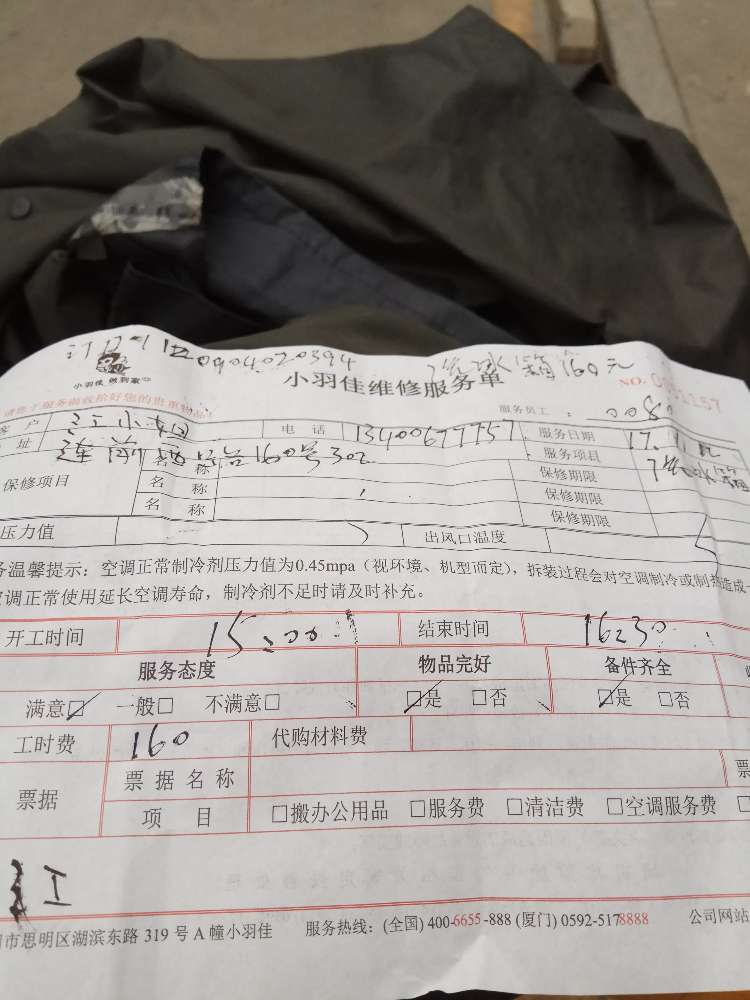 0904020394
160元
小羽佳 做到家
小羽佳维修服务单
NO.
请您于服务前收拾好您的贵重物品!
服务员工：008
客户 江小姐 电话 13400677757 服务日期 17.11.
址 连前西路160号302 名称 服务项目
保修项目 名称 保修期限
名称 保修期限
保修期限
压力值 出风口温度
务温馨提示：空调正常制冷剂压力值为0.45mpa（视环境、机型而定），拆装过程会对空调制冷或制热造成一
调正常使用延长空调寿命，制冷剂不足时请及时补充。
开工时间 15:00 结束时间 16:30
服务态度 物品完好 备件齐全
满意☑ 一般□ 不满意□ ☑是 □否 ☑是 □否
工时费 160 代购材料费
票据 票据名称 票
项目 □搬办公用品 □服务费 □清洁费 □空调服务费 □
江
市思明区湖滨东路 319 号 A 幢小羽佳 服务热线：(全国) 400-6655-888 (厦门) 0592-5178888 公司网站